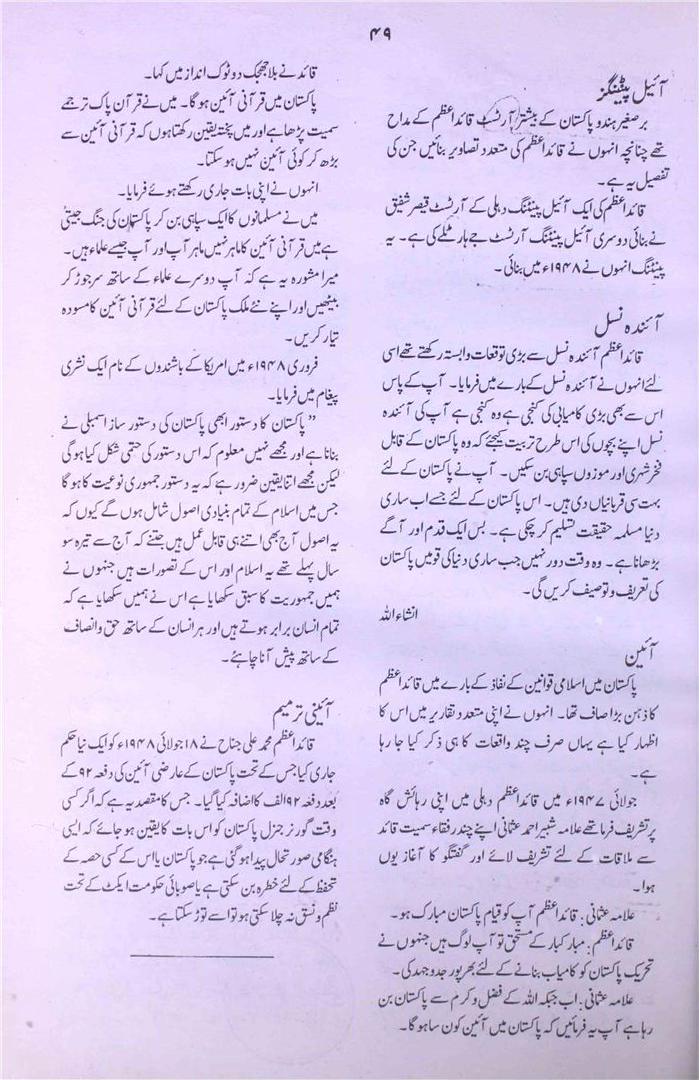 ۴۹
آئیل پیٹینگز
برصغیر ہندو پاکستان کے بیشتر آرٹسٹ قائداعظم کے مداح
تھے چنانچہ انہوں نے قائداعظم کی متعدد تصاویر بنائیں جن کی
تفصیل یہ ہے۔
قائداعظم کی ایک آئیل پینٹنگ دہلی کے آرٹسٹ قیصر شفیق
نے بنائی دوسری آئیل پینٹنگ آرٹسٹ جے ہارٹلے کی ہے۔ یہ
پینٹنگ انہوں نے ۱۹۴۸ء میں بنائی۔
آئندہ نسل
قائداعظم آئندہ نسل سے بڑی توقعات وابستہ رکھتے تھے اسی
لئے انہوں نے آئندہ نسل کے بارے میں فرمایا۔ آپ کے پاس
اس سے بھی بڑی کامیابی کی کنجی ہے وہ کنجی ہے آپ کی آئندہ
نسل اپنے بچوں کی اس طرح تربیت کیجئے کہ وہ پاکستان کے قابل
فخر شہری اور موزوں سپاہی بن سکیں۔ آپ نے پاکستان کے لئے
بہت سی قربانیاں دی ہیں۔ اس پاکستان کے لئے جسے اب ساری
دنیا مسلمہ حقیقت تسلیم کر چکی ہے۔ بس ایک قدم اور آگے
بڑھانا ہے۔ وہ وقت دور نہیں جب ساری دنیا کی قومیں پاکستان
کی تعریف و توصیف کریں گی۔
انشاء اللہ
آئین
پاکستان میں اسلامی قوانین کے نفاذ کے بارے میں قائداعظم
کا ذہن بڑا صاف تھا۔ انہوں نے اپنی متعدد تقاریر میں اس کا
اظہار کیا ہے یہاں صرف چند واقعات کا ہی ذکر کیا جا رہا
ہے۔
جولائی ۱۹۴۷ء میں قائداعظم دہلی میں اپنی رہائش گاہ
پر تشریف فرما تھے علامہ شبیر احمد عثمانی اپنے چند رفقاء سمیت قائد
سے ملاقات کے لئے تشریف لائے اور گفتگو کا آغاز یوں
ہوا۔
علامہ عثمانی : قائداعظم آپ کو قیام پاکستان مبارک ہو۔
قائداعظم : مبارکباد کے مستحق تو آپ لوگ ہیں جنہوں نے
تحریک پاکستان کو کامیاب بنانے کے لئے بھرپور جدوجہد کی۔
علامہ عثمانی : اب جبکہ اللہ کے فضل و کرم سے پاکستان بن
رہا ہے آپ یہ فرمائیں کہ پاکستان میں آئین کون سا ہوگا۔
قائد نے بلا جھجک دو ٹوک انداز میں کہا۔
پاکستان میں قرآنی آئین ہوگا۔ میں نے قرآن پاک ترجمے
سمیت پڑھا ہے اور میں پختہ یقین رکھتا ہوں کہ قرآنی آئین سے
بڑھ کر کوئی آئین نہیں ہو سکتا۔
انہوں نے اپنی بات جاری رکھتے ہوئے فرمایا۔
میں نے مسلمانوں کا ایک سپاہی بن کر پاکستان کی جنگ جیتی
ہے میں قرآنی آئین کا ماہر نہیں ماہر آپ اور آپ جیسے علماء ہیں۔
میرا مشورہ یہ ہے کہ آپ دوسرے علماء کے ساتھ سرجوڑ کر
بیٹھیں اور اپنے نئے ملک پاکستان کے لئے قرآنی آئین کا مسودہ
تیار کریں۔
فروری ۱۹۴۸ء میں امریکا کے باشندوں کے نام ایک نشری
پیغام میں فرمایا۔
” پاکستان کا دستور ابھی پاکستان کی دستور ساز اسمبلی نے
بنانا ہے اور مجھے نہیں معلوم کہ اس دستور کی حتمی شکل کیا ہو گی
لیکن مجھے اتنا یقین ضرور ہے کہ یہ دستور جمہوری نوعیت کا ہو گا
جس میں اسلام کے تمام بنیادی اصول شامل ہوں گے کیوں کہ
یہ اصول آج بھی اتنے ہی قابل عمل ہیں جتنے کہ آج سے تیرہ سو
سال پہلے تھے یہ اسلام اور اس کے تصورات ہیں جنہوں نے
ہمیں جمہوریت کا سبق سکھایا ہے اس نے ہمیں سکھایا ہے کہ
تمام انسان برابر ہوتے ہیں اور ہر انسان کے ساتھ حق و انصاف
کے ساتھ پیش آنا چاہئے۔
آئینی ترمیم
قائداعظم محمد علی جناح نے ۱۸ جولائی ۱۹۴۸ء کو ایک نیا حکم
جاری کیا جس کے تحت پاکستان کے عارضی آئین کی دفعہ ۹۲ کے
بعد دفعہ ۹۲ الف کا اضافہ کیا گیا۔ جس کا مقصد یہ ہے کہ اگر کسی
وقت گورنر جنرل پاکستان کو اس بات کا یقین ہو جائے کہ ایسی
ہنگامی صورتحال پیدا ہو گئی ہے جو پاکستان یا اس کے کسی حصہ کے
تحفظ کے لئے خطرہ بن سکتی ہے یا صوبائی حکومت ایکٹ کے تحت
نظم و نسق نہ چلا سکتی ہو تو اسے توڑ سکتا ہے۔